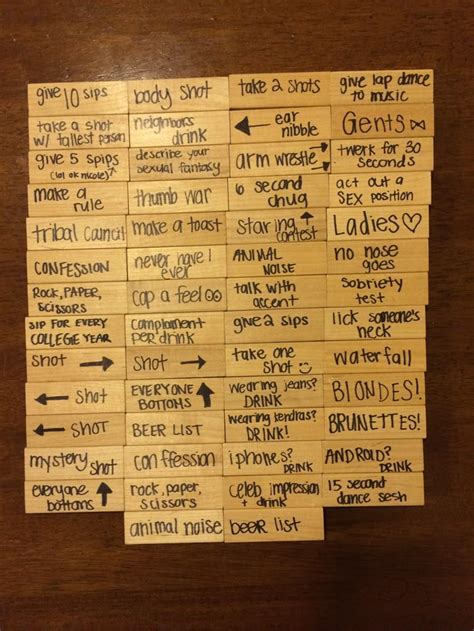 give 10 sips
body shot
take 2 shots
give lap dance
to music
take a shot
w/ tallest person
neighbors
drink
← ear
nibble
Gents
give 5 spips
(lol ok nicole)
describe your
sexual fantasy
arm wrestle
twerk for 30
seconds
make a
rule
thumb war
6 second
chug
act out a
SEX position
tribal council
make a toast
staring ↑
contest
Ladies ♡
CONFESSION
never have I
ever
ANIMAL
NOISE
no nose
goes
ROCK, PAPER,
SCISSORS
cop a feel
talk with
accent
sobriety
test
SIP FOR EVERY
COLLEGIE YEAR
complament
PER drink
give 2 sips
lick someone's
neck
shot →
shot →
take one
shot
waterfall
← shot
EVERYONE ↑
BOTTOMS
wearing jeans?
DRINK
BLONDES!
← SHOT
BEER LIST
wearing kendras?
DRINK!
BRUNETTES!
mystery
shot
confession
iphones?
DRINK
ANDROID?
DRINK
everyone ↑
bottoms
rock, paper,
scissors
celeb impression
+ drink
15 second
dance sesh
animal noise
beer list